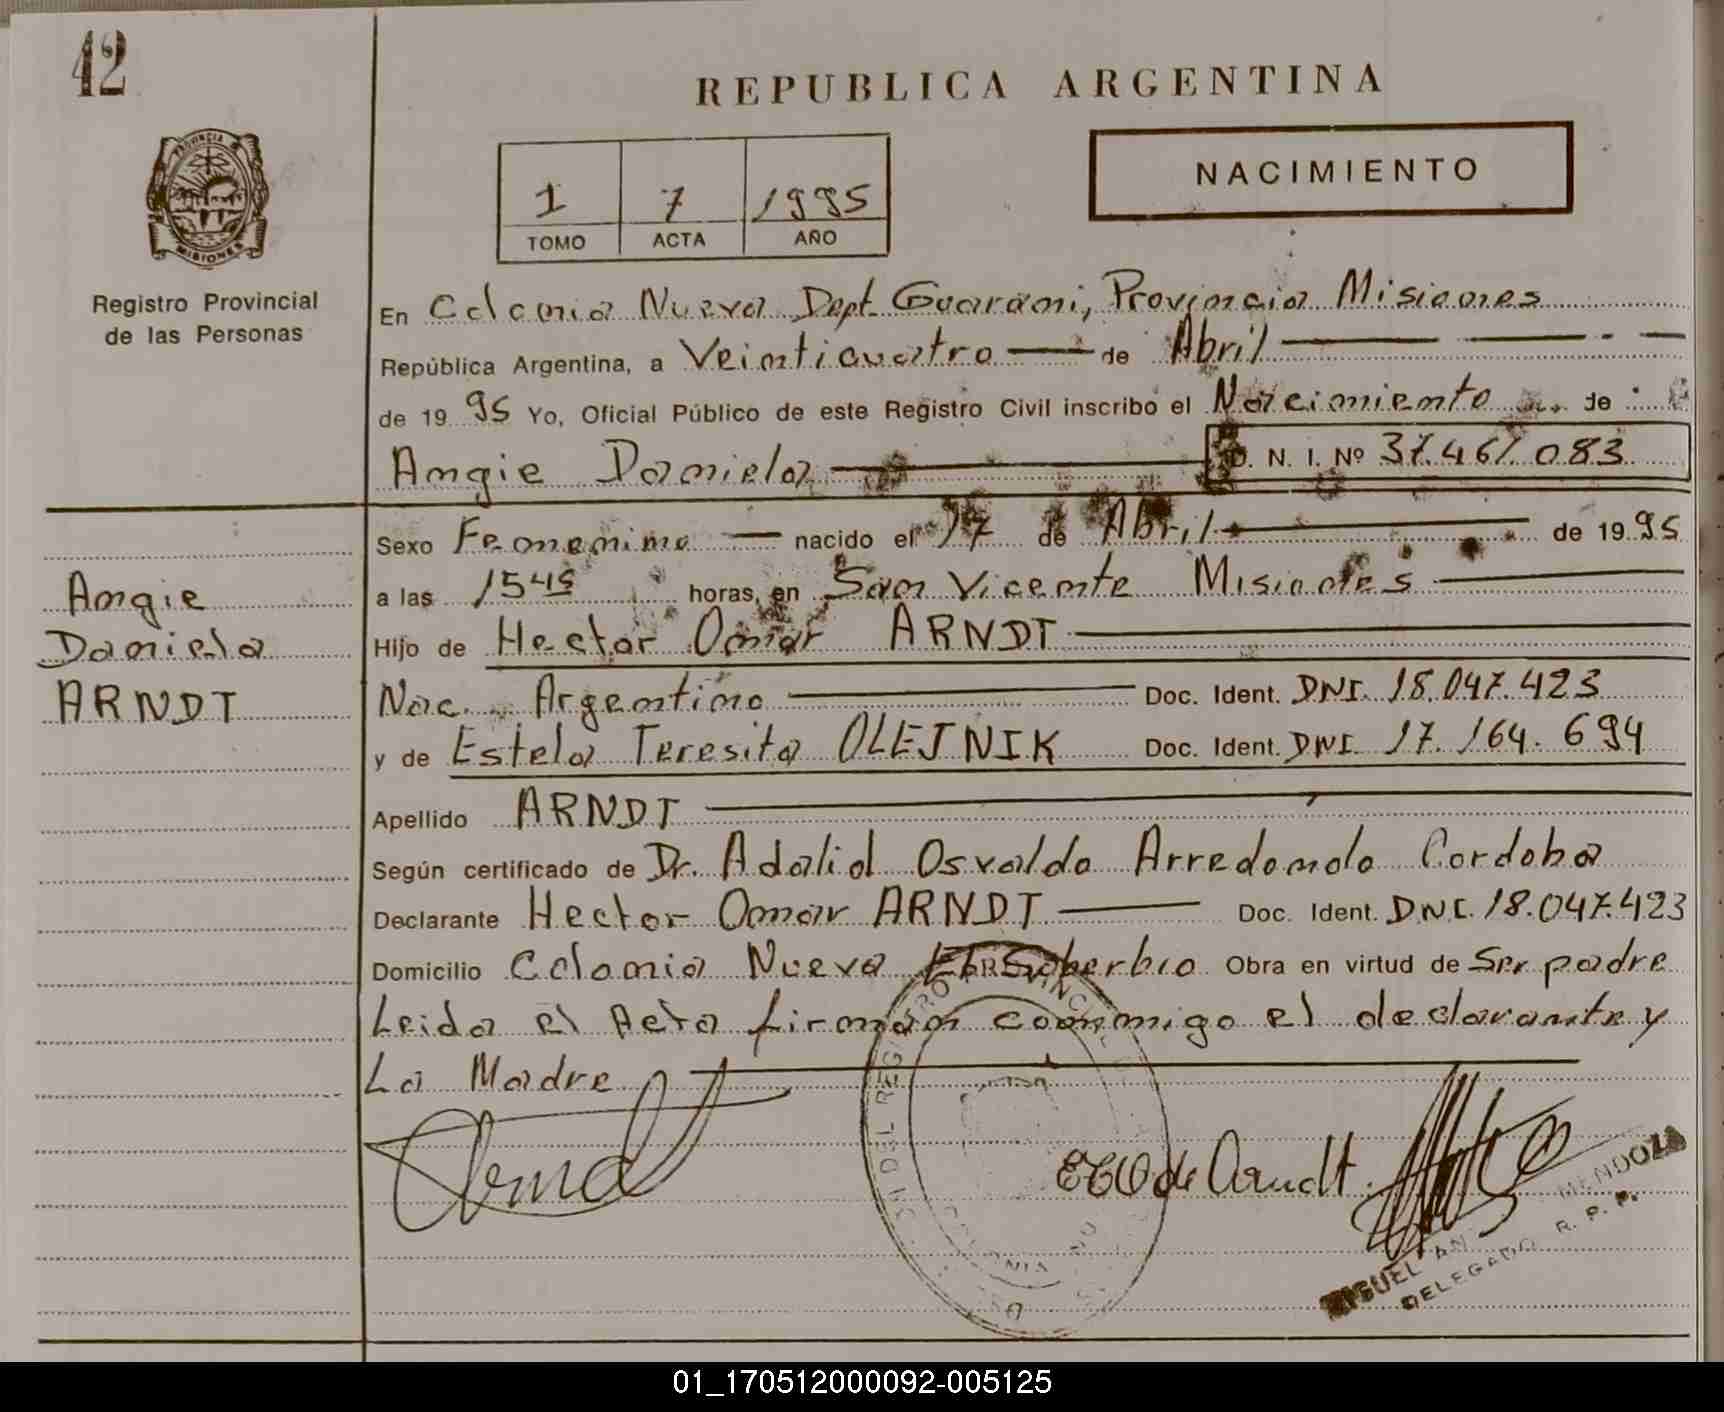 42
REPUBLICA ARGENTINA
NACIMIENTO
1 7 1995
TOMO ACTA AÑO
PROVINCIA D
MISIONES
Registro Provincial
de las Personas
En Colonia Nueva Dept. Guarani, Provincia Misiones
República Argentina, a Veinticuatro de Abril
de 1995 Yo, Oficial Público de este Registro Civil inscribo el Nacimiento de
Angie Daniela D. N. I. Nº 37.467.083
Sexo Femenino nacido el 17 de Abril de 1995
a las 15 45 horas, en San Vicente Misiones
Hijo de Hector Omar ARNDT
Nac. Argentino Doc. Ident. DNI. 18.047.423
y de Estela Teresita OLEJNIK Doc. Ident. DNI. 17.164.694
Apellido ARNDT
Según certificado de Dr. Adalid Osvaldo Arredondo Cordoba
Declarante Hector Omar ARNDT Doc. Ident. DNI. 18.047.423
Domicilio Colonia Nueva El Soberbio Obra en virtud de Ser padre
Leida el Acta firman conmigo el declarante y
La Madre
Angie
Daniela
ARNDT
de Arndt
MIGUEL MENDOZA
DELEGADO R. P. P.
01_170512000092-005125